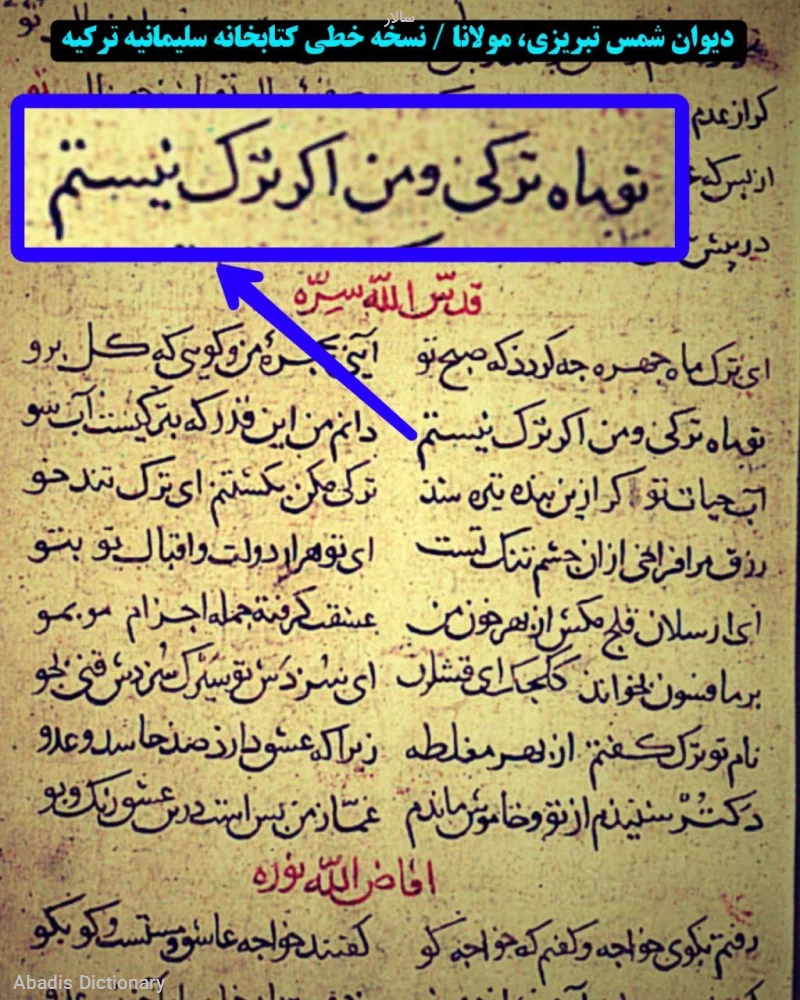 سالار
دیوان شمس تبریزی، مولانا / نسخه خطی کتابخانه سلیمانیه ترکیه
کر از عدم
تو ماه ترکی و من اکر ترک نیستم
قدّس اللّه سِرّه
ای ترک ماه جهره جه کردذ که صبح تو آیی بحجرهٔ من و کویی که کل برو
تو ماه ترکی و من اکر ترک نیستم دانم من این قدر که بترکیست آب سو
آب حیات تو کر ازین بنده تیره شذ ترکی مکن بکشتنم ای ترک تند خو
رزق مرا فراخی از آن جشم تنک تست ای تو هزار دولت و اقبال تو بتو
ای ارسلان قلج مکش از بهر خون من عشقت کرفته جمله اجزام مو بمو
بر ما فسون بخواند ککجک ای قشلرن ای سزدش تو سیرک سزدش قنی بجو
نام تو ترک کفتم از بهر مغلطه زیرا که عشق دارذ صذ حاسد و عدو
دکتر شنیذم از تو و خاموش ماندم غمّاز من بس است درین عشق رنک و بو
افاض اللّه نوره
رفتم بکوی خواجه و کفتم که خواجه کو کفتند خواجه عاشق و مستست و کو بکو
Abadis Dictionary